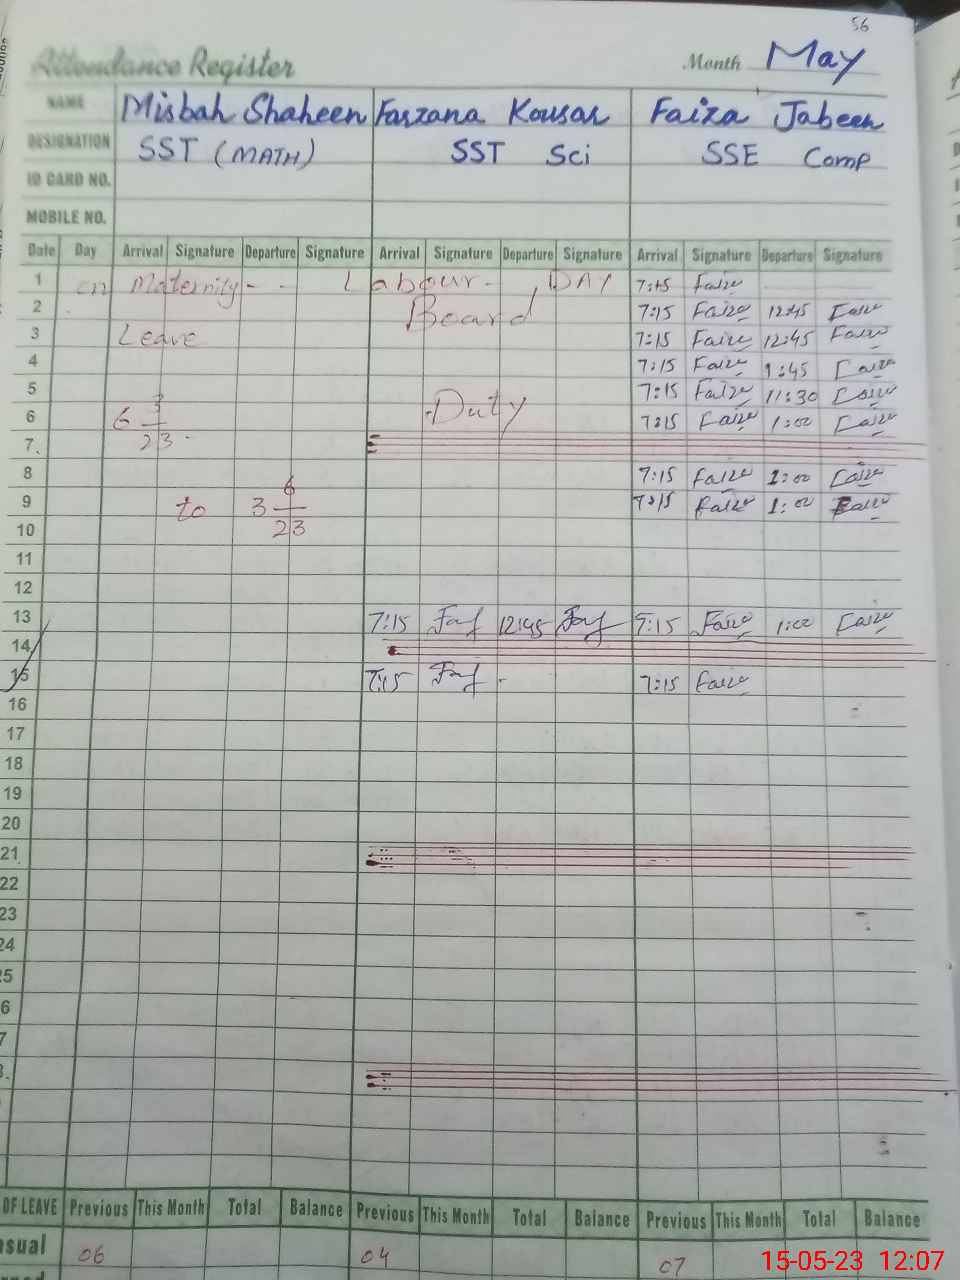 56
Attendance Register Month May
NAME Misbah Shaheen Farzana Kousar Faiza Jabeen
DESIGNATION SST (MATH) SST Sci SSE Comp
ID CARD NO.
MOBILE NO.
Date Day Arrival Signature Departure Signature Arrival Signature Departure Signature Arrival Signature Departure Signature
1 on Maternity - - Labour - DAY 7:15 Faiza
2 Board 7:15 Faiza 12:45 Faiza
3 Leave 7:15 Faiza 12:45 Faiza
4 7:15 Faiza 1:45 Faiza
5 7:15 Faiza 11:30 Faiza
6 6 3/23 Duty 7:15 Faiza 1:00 Faiza
7
8 7:15 Faiza 1:00 Faiza
9 to 3 6/23 7:15 Faiza 1:00 Faiza
10
11
12
13 7:15 12:45 7:15 Faiza 1:00 Faiza
14
15 7:15 7:15 Faiza
16
17
18
19
20
21
22
23
24
5
6
7
OF LEAVE Previous This Month Total Balance Previous This Month Total Balance Previous This Month Total Balance
sual 06 04 07
15-05-23 12:07